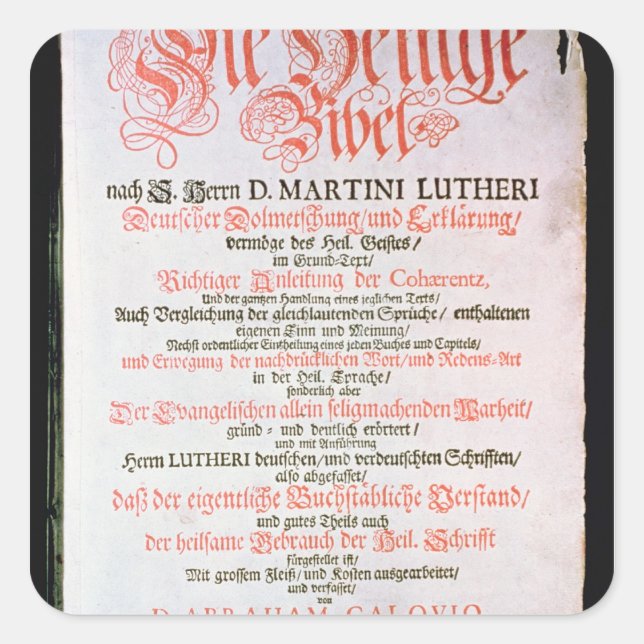 Die Heilige
Bibel
nach S. Herrn D. MARTINI LUTHERI
Deutscher Dolmetschung/und Erklärung/
vermöge des Heil. Geistes/
im Grund-Text/
Richtiger Anleitung der Cohærentz,
Und der gantzen Handlung eines jeglichen Texts/
Auch Vergleichung der gleichlautenden Sprüche/ enthaltenen
eigenen Sinn und Meinung/
Nechst ordentlicher Eintheilung eines jeden Buches und Capitels/
und Erwegung der nachdrücklichen Wort/und Redens-Art
in der Heil. Sprache/
sonderlich aber
Der Evangelischen allein seligmachenden Warheit/
gründ- und deutlich erörtert/
und mit Anführung
Herrn LUTHERI deutschen/und verdeutschten Schrifften/
also abgefasset/
daß der eigentliche Buchstäbliche Verstand/
und gutes Theils auch
der heilsame Gebrauch der Heil. Schrifft
fürgestellet ist/
Mit grossem Fleiß/und Kosten ausgearbeitet/
und verfasset/
von
D. ABRAHAM CALOVIO